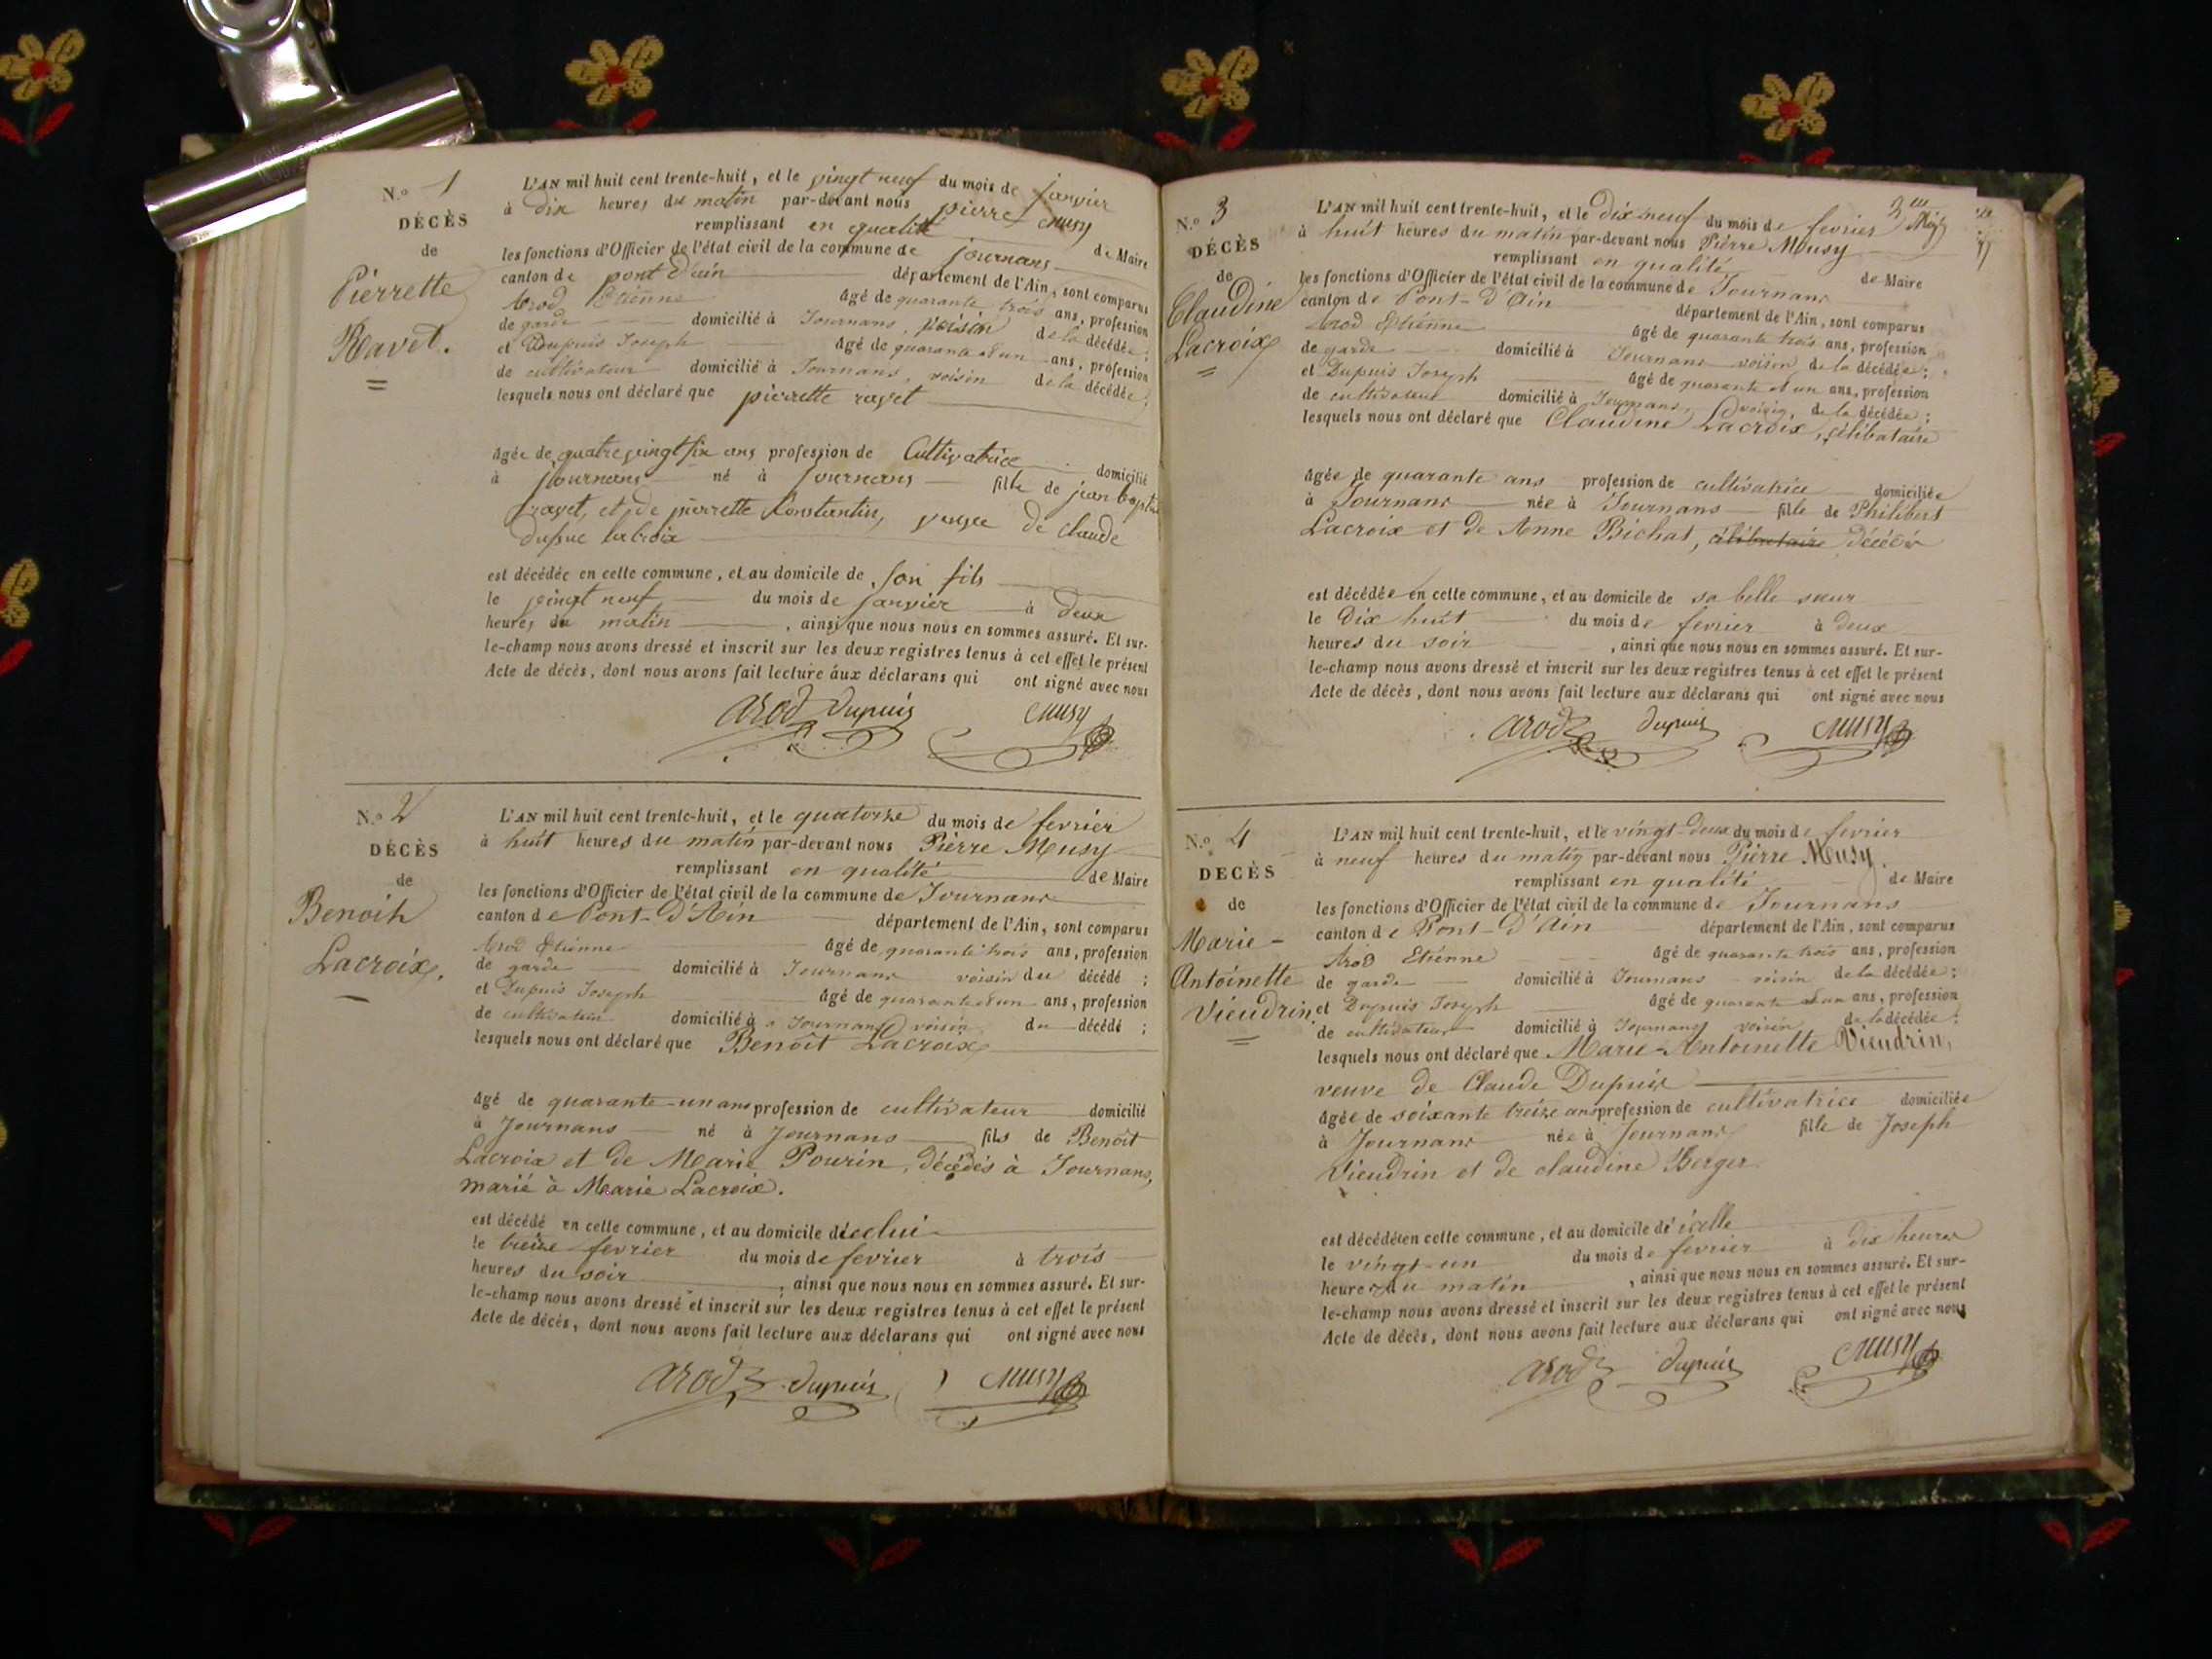 N.o 1
DÉCÈS
de
Pierrette
Ravet.
L'AN mil huit cent trente-huit, et le vingt neuf du mois de janvier
à dix heures du matin par-devant nous pierre Musy
remplissant en qualité de Maire
les fonctions d'Officier de l'état civil de la commune de journans
canton de pont d'ain département de l'Ain, sont comparus
Arod Etienne âgé de quarante trois ans, profession
de garde domicilié à Journans, voisin de la décédée;
et Dupuis Joseph âgé de quarante et un ans, profession
de cultivateur domicilié à Journans, voisin de la décédée;
lesquels nous ont déclaré que pierrette ravet
âgée de quatre vingt six ans profession de Cultivatrice domicilié
à journans né à journans fille de jean baptiste
ravet, et de pierrette Constantin, veuve de claude
est décédée en cette commune, et au domicile de son fils
le vingt neuf du mois de janvier à deux
heures du matin, ainsi que nous nous en sommes assuré. Et sur-
le-champ nous avons dressé et inscrit sur les deux registres tenus à cet effet le présent
Acte de décès, dont nous avons fait lecture aux déclarans qui ont signé avec nous
arod dupuis Musy
N.o 2
DÉCÈS
de
Benoit
Lacroix.
L'AN mil huit cent trente-huit, et le quatorze du mois de fevrier
à huit heures du matin par-devant nous Pierre Musy
remplissant en qualité de Maire
les fonctions d'Officier de l'état civil de la commune de Journans
canton de Pont-D'Ain département de l'Ain, sont comparus
Arod Etienne âgé de quarante trois ans, profession
de garde domicilié à Journans voisin du décédé;
et Dupuis Joseph âgé de quarante et un ans, profession
de cultivateur domicilié à Journans voisin du décédé;
lesquels nous ont déclaré que Benoît Lacroix
âgé de quarante-un ans profession de cultivateur domicilié
à Journans né à Journans fils de Benoît
Lacroix et de Marie Pourin, décédés à Journans,
marié à Marie Lacroix.
est décédé en cette commune, et au domicile d'icelui
le treize fevrier du mois de fevrier à trois
heures du soir, ainsi que nous nous en sommes assuré. Et sur-
le-champ nous avons dressé et inscrit sur les deux registres tenus à cet effet le présent
Acte de décès, dont nous avons fait lecture aux déclarans qui ont signé avec nous
arod dupuis Musy
N.o 3
DÉCÈS
de
Claudine
Lacroix
L'AN mil huit cent trente-huit, et le dix neuf du mois de fevrier
à huit heures du matin par-devant nous Pierre Musy
remplissant en qualité de Maire
les fonctions d'Officier de l'état civil de la commune de Journans
canton de Pont-D'Ain département de l'Ain, sont comparus
Arod Etienne âgé de quarante trois ans, profession
de garde domicilié à Journans voisin de la décédée;
et Dupuis Joseph âgé de quarante et un ans, profession
de cultivateur domicilié à Journans, voisin, de la décédée;
lesquels nous ont déclaré que Claudine Lacroix, célibataire
âgée de quarante ans profession de cultivatrice domiciliée
à Journans née à Journans fille de Philibert
Lacroix et de Anne Bichat, célibataire
est décédée en cette commune, et au domicile de sa belle sœur
le Dix huit du mois de fevrier à deux
heures du soir, ainsi que nous nous en sommes assuré. Et sur-
le-champ nous avons dressé et inscrit sur les deux registres tenus à cet effet le présent
Acte de décès, dont nous avons fait lecture aux déclarans qui ont signé avec nous
arod dupuis Musy
N.o 4
DÉCÈS
de
Marie-
Antoinette
Vieudrin
L'AN mil huit cent trente-huit, et le vingt-deux du mois de fevrier
à neuf heures du matin par-devant nous Pierre Musy.
remplissant en qualité de Maire
les fonctions d'Officier de l'état civil de la commune de Journans
canton de Pont-D'Ain département de l'Ain, sont comparus
Arod Etienne âgé de quarante trois ans, profession
de garde domicilié à Journans voisin de la décédée;
et Dupuis Joseph âgé de quarante et un ans, profession
de cultivateur domicilié à Journans voisin de la décédée;
lesquels nous ont déclaré que Marie-Antoinette Vieudrin,
veuve de Claude Dupuis
âgée de soixante treize ans profession de cultivatrice domiciliée
à Journans née à Journans fille de Joseph
Vieudrin et de claudine Berger
est décédée en cette commune, et au domicile d'icelle
le vingt-un du mois de fevrier à dix heures
heures du matin, ainsi que nous nous en sommes assuré. Et sur-
le-champ nous avons dressé et inscrit sur les deux registres tenus à cet effet le présent
Acte de décès, dont nous avons fait lecture aux déclarans qui ont signé avec nous
arod dupuis Musy